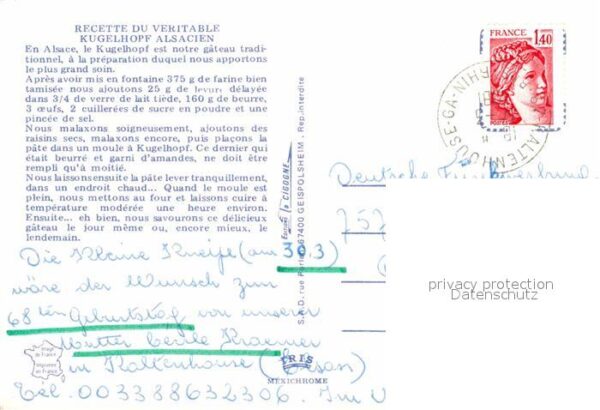 RECETTE DU VERITABLE
KUGELHOPF ALSACIEN
En Alsace, le Kugelhopf est notre gâteau tradi-
tionnel, à la préparation duquel nous apportons
le plus grand soin.
Après avoir mis en fontaine 375 g de farine bien
tamisée nous ajoutons 25 g de levure délayée
dans 3/4 de verre de lait tiède, 160 g de beurre,
3 œufs, 2 cuillerées de sucre en poudre et une
pincée de sel.
Nous malaxons soigneusement, ajoutons des
raisins secs, malaxons encore, puis plaçons la
pâte dans un moule à Kugelhopf. Ce dernier qui
était beurré et garni d'amandes, ne doit être
rempli qu'à moitié.
Nous laissons ensuite la pâte lever tranquillement,
dans un endroit chaud... Quand le moule est
plein, nous mettons au four et laissons cuire à
température modérée une heure environ.
Ensuite... eh bien, nous savourons ce délicieux
gâteau le jour même ou, encore mieux, le
lendemain.
Die Kleine Kneipe (am 30.3)
wäre der Wunsch zum
68 ten Geburtstag von unserer
Mutter Cécile Kraemer
in Kaltenhouse (Elsass)
Tél. 003388632306. Im
Editions la CIGOGNE
S.A.D. rue 67400 GEISPOLSHEIM - Rep. interdite
IRIS
MEXICHROME
Image de France
Imprimée en France
FRANCE
1,40
POSTES
KALTENHOUSE-GA-NIHY
Deutsche
757
privacy protection
Datenschutz